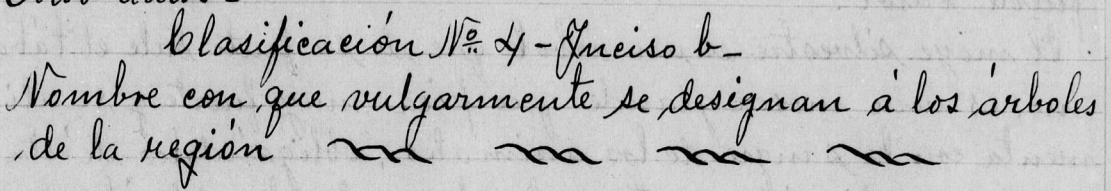 Clasificación Nº 4 - Inciso b -
Nombre con que vulgarmente se designan á los árboles
de la región